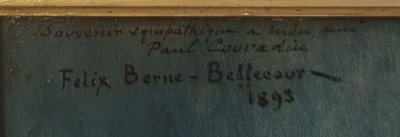 Souvenir sympathique a mon ami
Paul
Felix Berne-Bellecour
1893